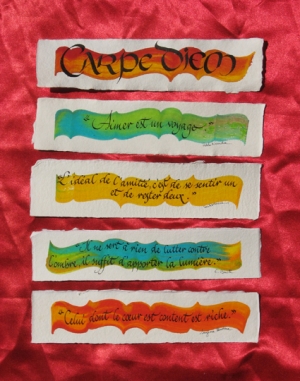 Carpe Diem
"Aimer est un voyage."
"L'idéal de l'amitié, c'est de se sentir un
et de rester deux."
"Il ne sert à rien de lutter contre
l'ombre, il suffit d'apporter la lumière."
"Celui dont le cœur est content est riche."